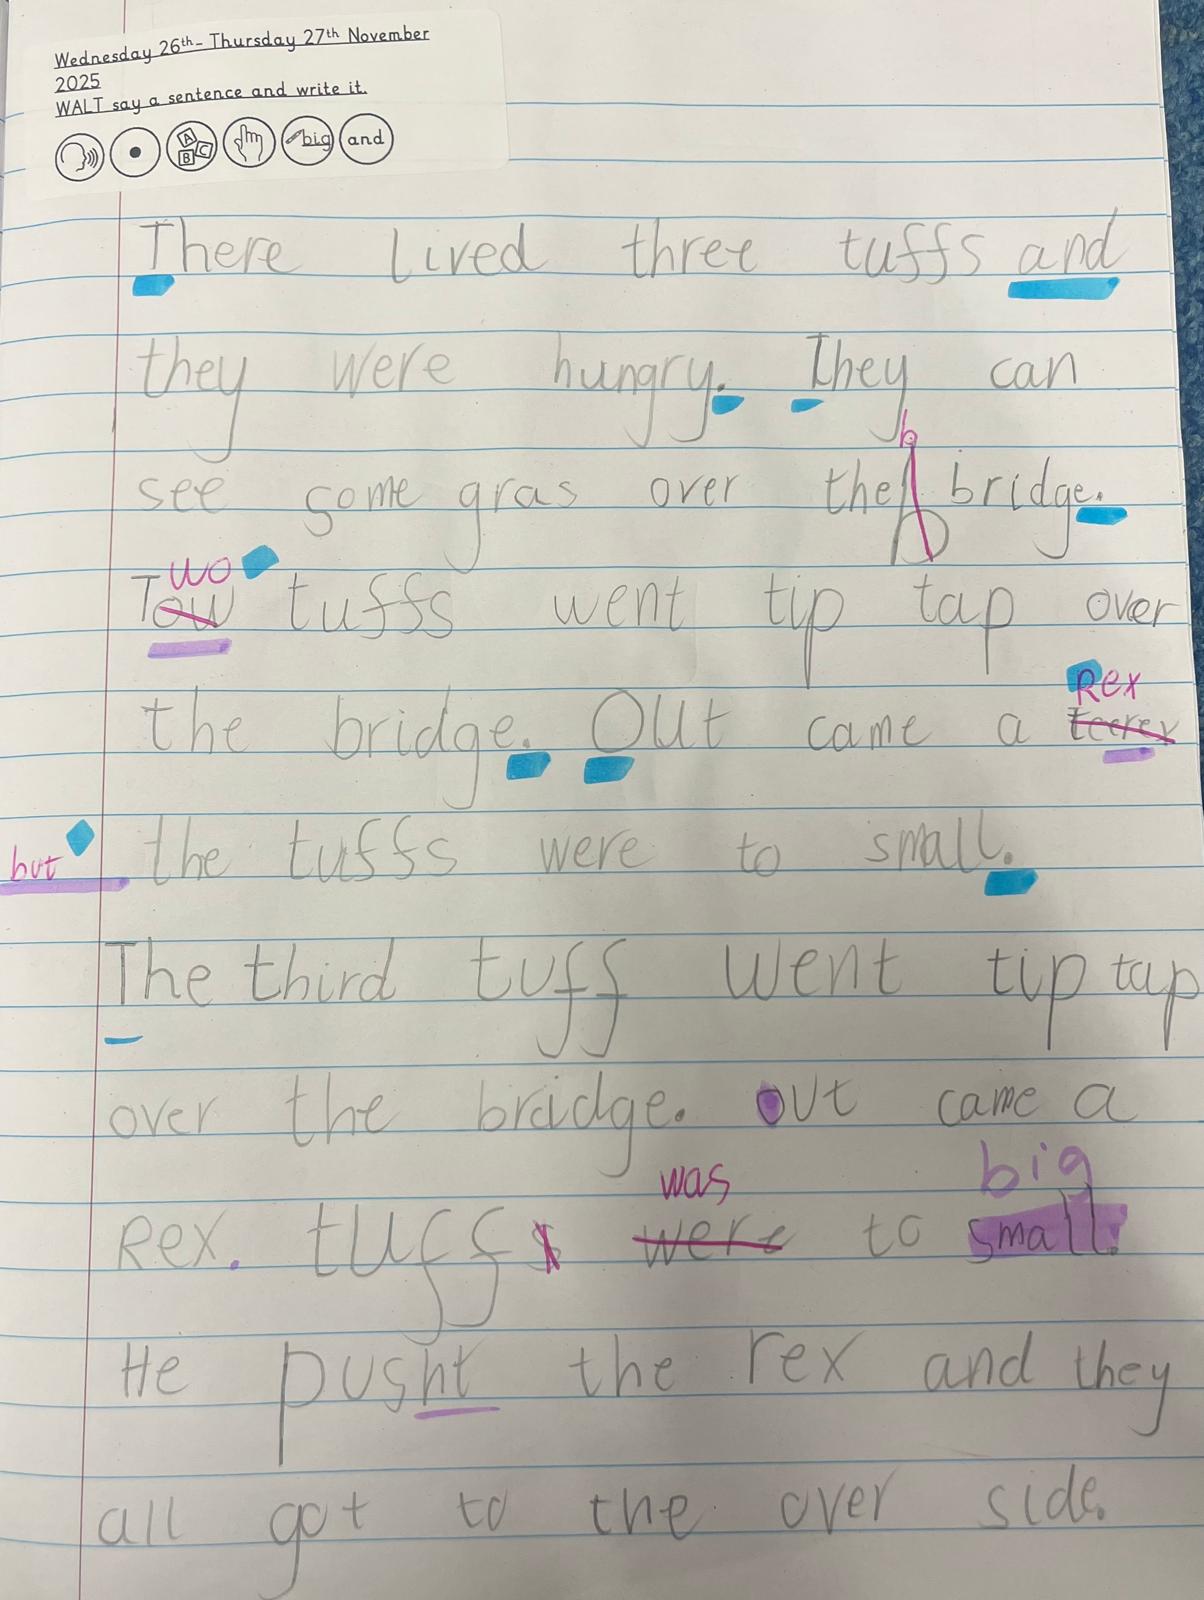 Wednesday 26th - Thursday 27th November
2025
WALT say a sentence and write it.
A B C big and
There lived three tuffs and
they were hungry. They can
b
see some gras over the bridge.
wo
Tow tuffs went tip tap over
Rex
the bridge. Out came a teerex
but the tuffs were to small.
The third tuff went tip tap
over the bridge. out came a
was big
Rex. tuffs were to small.
He pusht the rex and they
all got to the over side.